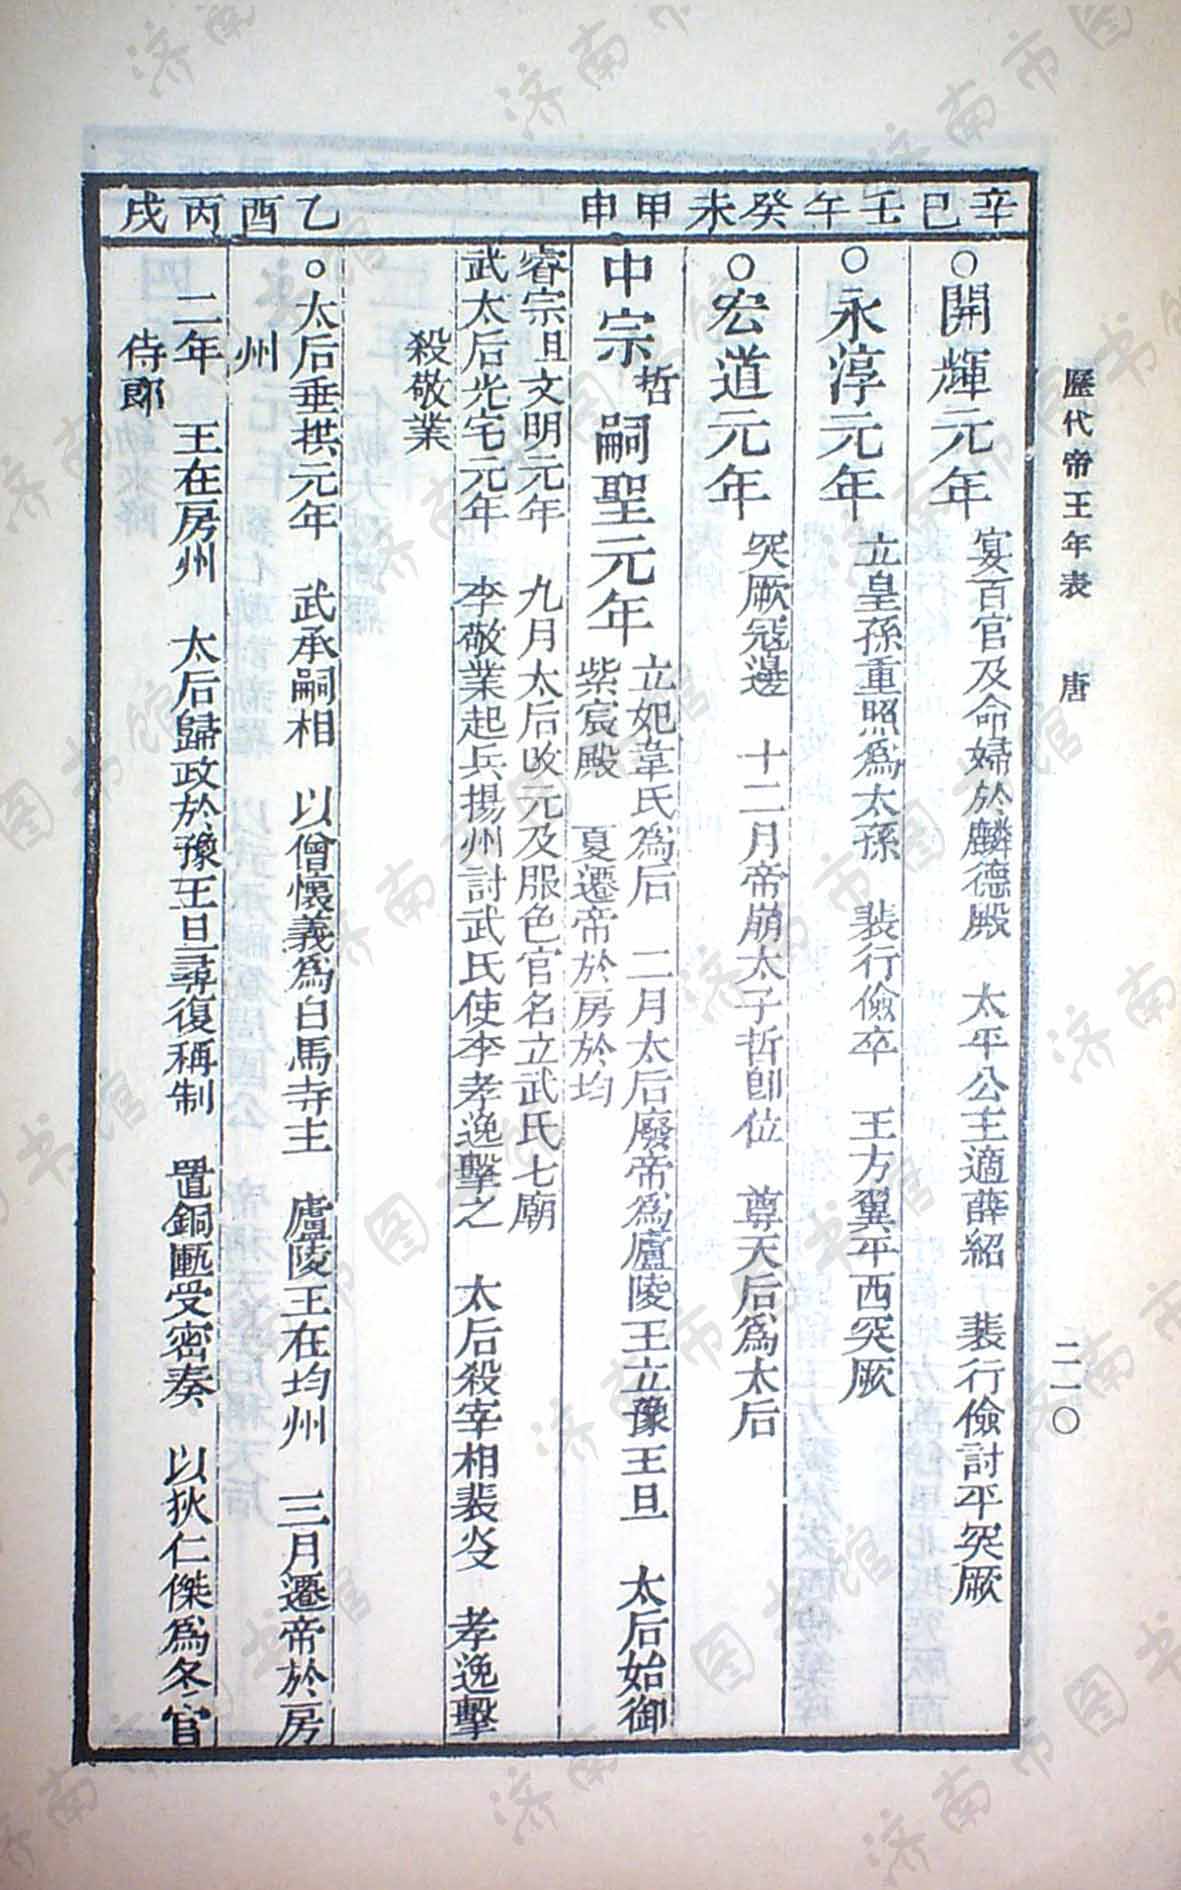 歷代帝王年表　唐　二一〇
辛巳　壬午　癸未　甲申　乙酉　丙戌
○開輝元年　宴百官及命婦於麟德殿　太平公主適薛紹　裴行儉討平突厥
○永淳元年　立皇孫重照為太孫　裴行儉卒　王方翼平西突厥
○宏道元年　突厥寇邊　十二月帝崩太子哲卽位　尊天后為太后
中宗哲嗣聖元年　立妃韋氏為后　二月太后廢帝為廬陵王立豫王旦　太后始御
紫宸殿　夏遷帝於房於均
睿宗旦文明元年　九月太后改元及服色官名立武氏七廟
武太后光宅元年　李敬業起兵揚州討武氏使李孝逸擊之　太后殺宰相裴炎　孝逸擊
殺敬業
○太后垂拱元年　武承嗣相　以僧懷義為白馬寺主　廬陵王在均州　三月遷帝於房
州
二年　王在房州　太后歸政於豫王旦尋復稱制　置銅匭受密奏　以狄仁傑為冬官
侍郎
济南市图书馆